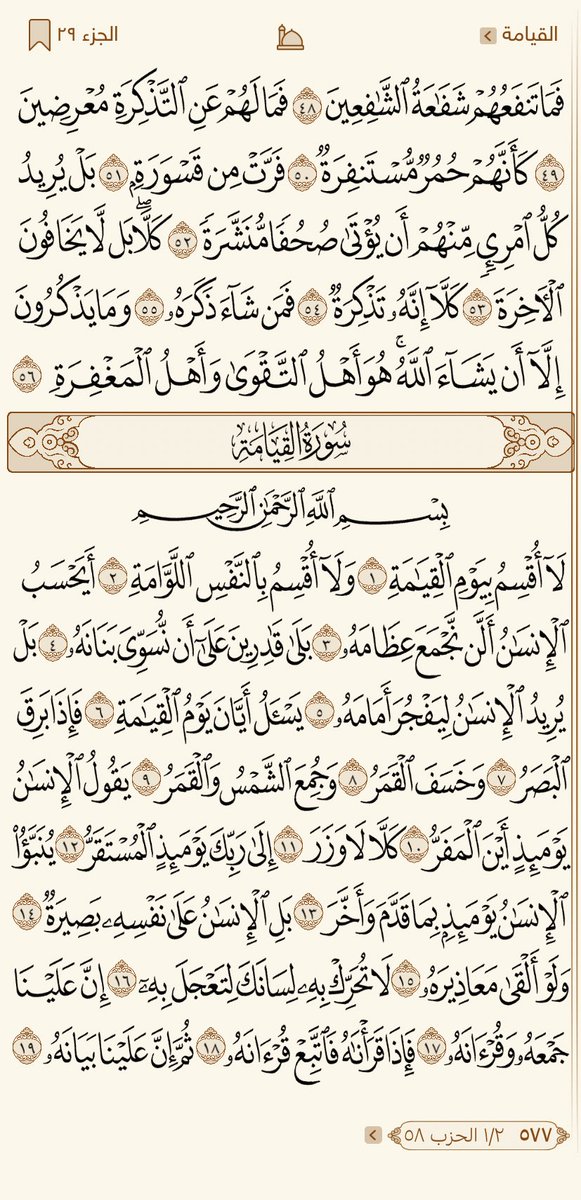 القيامة
الجزء ٢٩
فَمَا تَنفَعُهُمْ شَفَٰعَةُ ٱلشَّٰفِعِينَ ٤٨ فَمَا لَهُمْ عَنِ ٱلتَّذْكِرَةِ مُعْرِضِينَ
٤٩ كَأَنَّهُمْ حُمُرٌ مُّسْتَنفِرَةٌ ٥٠ فَرَّتْ مِن قَسْوَرَةٍۭ ٥١ بَلْ يُرِيدُ
كُلُّ ٱمْرِئٍ مِّنْهُمْ أَن يُؤْتَىٰ صُحُفًا مُّنَشَّرَةً ٥٢ كَلَّاۖ بَل لَّا يَخَافُونَ
ٱلْأَخِرَةَ ٥٣ كَلَّآ إِنَّهُۥ تَذْكِرَةٌ ٥٤ فَمَن شَآءَ ذَكَرَهُۥ ٥٥ وَمَا يَذْكُرُونَ
إِلَّآ أَن يَشَآءَ ٱللَّهُۚ هُوَ أَهْلُ ٱلتَّقْوَىٰ وَأَهْلُ ٱلْمَغْفِرَةِ ٥٦
سُورَةُ القِيَامَةِ
بِسْمِ ٱللَّهِ ٱلرَّحْمَٰنِ ٱلرَّحِيمِ
لَآ أُقْسِمُ بِيَوْمِ ٱلْقِيَٰمَةِ ١ وَلَآ أُقْسِمُ بِٱلنَّفْسِ ٱللَّوَّامَةِ ٢ أَيَحْسَبُ
ٱلْإِنسَٰنُ أَلَّن نَّجْمَعَ عِظَامَهُۥ ٣ بَلَىٰ قَٰدِرِينَ عَلَىٰٓ أَن نُّسَوِّىَ بَنَانَهُۥ ٤ بَلْ
يُرِيدُ ٱلْإِنسَٰنُ لِيَفْجُرَ أَمَامَهُۥ ٥ يَسْـَٔلُ أَيَّانَ يَوْمُ ٱلْقِيَٰمَةِ ٦ فَإِذَا بَرِقَ
ٱلْبَصَرُ ٧ وَخَسَفَ ٱلْقَمَرُ ٨ وَجُمِعَ ٱلشَّمْسُ وَٱلْقَمَرُ ٩ يَقُولُ ٱلْإِنسَٰنُ
يَوْمَئِذٍ أَيْنَ ٱلْمَفَرُّ ١٠ كَلَّا لَا وَزَرَ ١١ إِلَىٰ رَبِّكَ يَوْمَئِذٍ ٱلْمُسْتَقَرُّ ١٢ يُنَبَّؤُا۟
ٱلْإِنسَٰنُ يَوْمَئِذٍۭ بِمَا قَدَّمَ وَأَخَّرَ ١٣ بَلِ ٱلْإِنسَٰنُ عَلَىٰ نَفْسِهِۦ بَصِيرَةٌ ١٤
وَلَوْ أَلْقَىٰ مَعَاذِيرَهُۥ ١٥ لَا تُحَرِّكْ بِهِۦ لِسَانَكَ لِتَعْجَلَ بِهِۦٓ ١٦ إِنَّ عَلَيْنَا
جَمْعَهُۥ وَقُرْءَانَهُۥ ١٧ فَإِذَا قَرَأْنَٰهُ فَٱتَّبِعْ قُرْءَانَهُۥ ١٨ ثُمَّ إِنَّ عَلَيْنَا بَيَانَهُۥ ١٩
٥٧٧ ١/٢ الحزب ٥٨